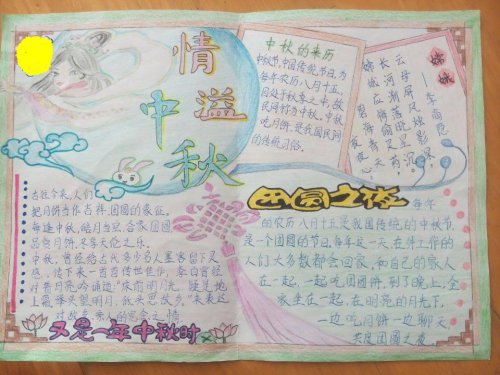 情溢
中秋
中秋的来历
中秋节,中国传统节日,为
每年农历八月十五,
因处于秋季之中,故
民间称为中秋,中秋
吃月饼,是我国民间
的传统习俗。
嫦娥
李商隐
云母屏风烛影深,
长河渐落晓星沉。
嫦娥应悔偷灵药,
碧海青天夜夜心。
古往今来,人们
把月饼当作吉祥、团圆的象征。
每逢中秋,皓月当空,合家团圆,
品饼月饼,尽享天伦之乐。
中秋,曾经给古代多少名人墨客留下灵
感,传下来一首首传世佳作,李白曾经
对着月亮吟诵道:“床前明月光,疑是地
上霜,举头望明月,低头思故乡”来表达
对故乡亲人的思念之情
又是一年中秋时
团圆之夜
每年
的农历八月十五是我国传统的中秋节
是一个团圆的节日,每年这一天,在外工作的
人们大多数都会回家,和自己的家人
在一起,一起吃团圆饼,到了晚上,全
家坐在一起,在明亮的月光下,
一边吃月饼一边聊天
共度团圆之夜